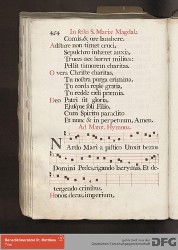 424 In festo S. Mariæ Magdal:
Comis & ore lambere.
Adstare non timet cruci,
Sepulchro inhæret anxia,
Truces nec horret milites:
Pellit timorem charitas.
O vera Christe charitas,
Tu nostra purga crimina,
Tu corda reple gratia,
Tu redde cœli præmia.
Deo Patri sit gloria,
Ejusque soli Filio,
Cum Spiritu paraclito
Et nunc & in perpetuum, Amen.
Ad Matut. Hymnus.
Nardo Mari a pistico Unxit beatos
Domini Pedes, rigando lacrymis, Et de-
tergendo crinibus.
Honos, decus, imperium,
DFG